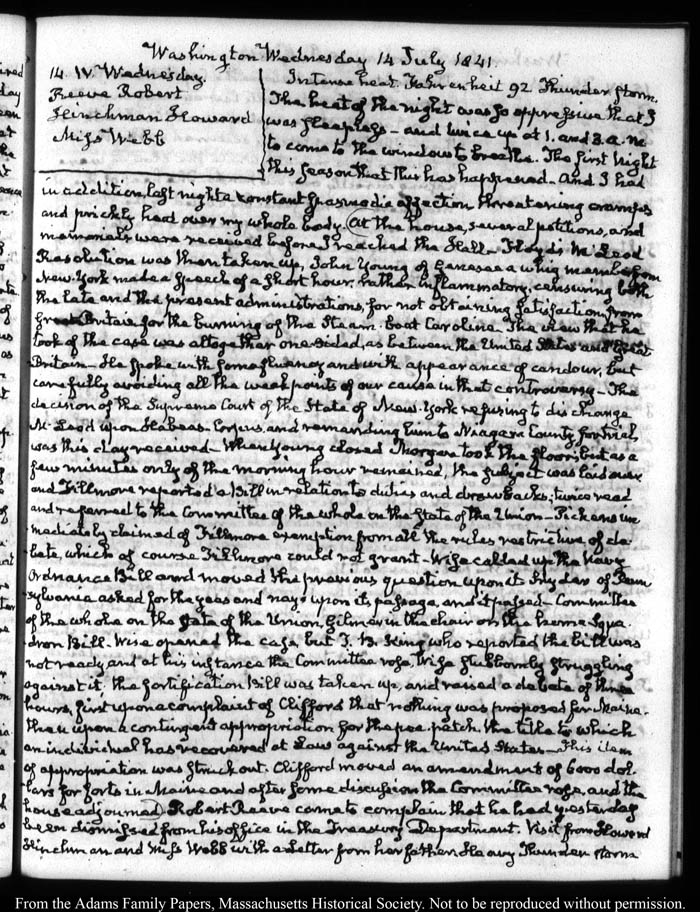 Washington Wednesday 14 July 1841
14. IV. Wednesday.
Reeve Robert
Hinchman Howard
Miss Webb
Intense heat. Fahrenheit 92 Thunder storm.
The heat of the night was so oppressive that I
was sleepless – and twice up at 1. and 3. a.m.
to come to the window to breathe. The first night
this season that this has happened. And I had
in addition last night a constant spasmodic affection threatening cramps
and prickly heat over my whole body. At the house, several petitions, and
memorials were received before I reached the Hall. Floyd's McLeod
Resolution was then taken up, John Young of Geneseo a whig member from
New-York made a speech of a short hour, rather inflammatory, censuring both
the late and the present administrations, for not obtaining satisfaction from
Great Britain for the burning of the Steam-boat Caroline. The view that he
took of the case was altogether one sided, as between the United States and Great
Britain – He spoke with some fluency and with appearance of candour, but
carefully avoiding all the weak points of our cause in that controversy – The
decision of the Supreme Court of the State of New-York refusing to discharge
McLeod upon Habeas Corpus, and remanding him to Niagara County for trial,
was this day received – When Young closed Morgan took the floor; but as a
few minutes only of the morning hour remained, the subject was laid over
and Fillmore reported a Bill in relation to duties and drawbacks; twice read
and referred to the Committee of the whole on the State of the Union – Pickens im
mediately claimed of Fillmore exemption from all the rules restrictive of de
bate, which of course Fillmore could not grant – Wise called up the Navy
Ordnance Bill and moved the previous question upon it Snyder of Penn
sylvania asked for the yeas and nays upon its passage, and it passed – Committee
of the whole on the State of the Union, Gilmer in the chair on the home Squa-
dron Bill – Wise opened the case, but T. B. King who reported the bill was
not ready and at his instance the Committee rose, Wise stubbornly struggling
against it, the fortification Bill was taken up, and raised a debate of three
hours, first upon a complaint of Clifford that nothing was proposed for Maine.
then upon a contingent appropriation for the pea-patch, the title to which
an individual has recovered at Law against the United States – This item
of appropriation was struck out. Clifford moved an amendment of 6000 dol-
lars for forts in Maine and after some discussion the Committee rose, and the
house adjourned. Robert Reeve came to complain that he had yesterday
been dismissed from his office in the Treasury Department. Visit from Howard
Hinchman and Miss Webb with a letter from her father. Heavy Thunder storm
From the Adams Family Papers, Massachusetts Historical Society. Not to be reproduced without permission.